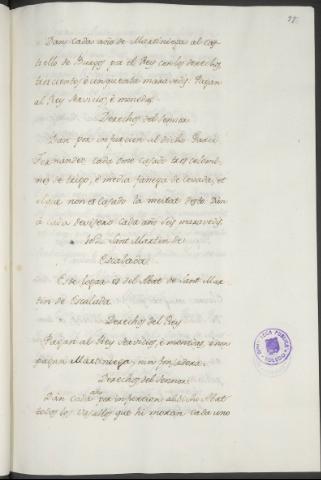 77
Dan cada año de Martiniega al cas-
tiello de Burgos por el Rey con los derechos,
trescientos è cinquenta maravedis. Pagan
al Rey servicios, è monedas.
Derechos del Sennor
Dan por infurcion al dicho Garci
Fernandez cada ome casado tres celemi-
nes de trigo, è media fanega de cevada, et
el que non es casado la meitat desto. Dan
à cada devisero cada año seis maravedis.
Sant Martin de
Escalada
Este logar es del Abat de Sant Mar-
tin de Escalada
Derechos del Rey
Pagan al Rey servicios, è monedas, è non
pagan Martiniega, nin fonsadera.
Derechos del Sennor
Dan cada año por infurcion al dicho Abat
todos los vasallos que hi moran cada uno
BIBLIOTECA PUBLICA
TOLEDO